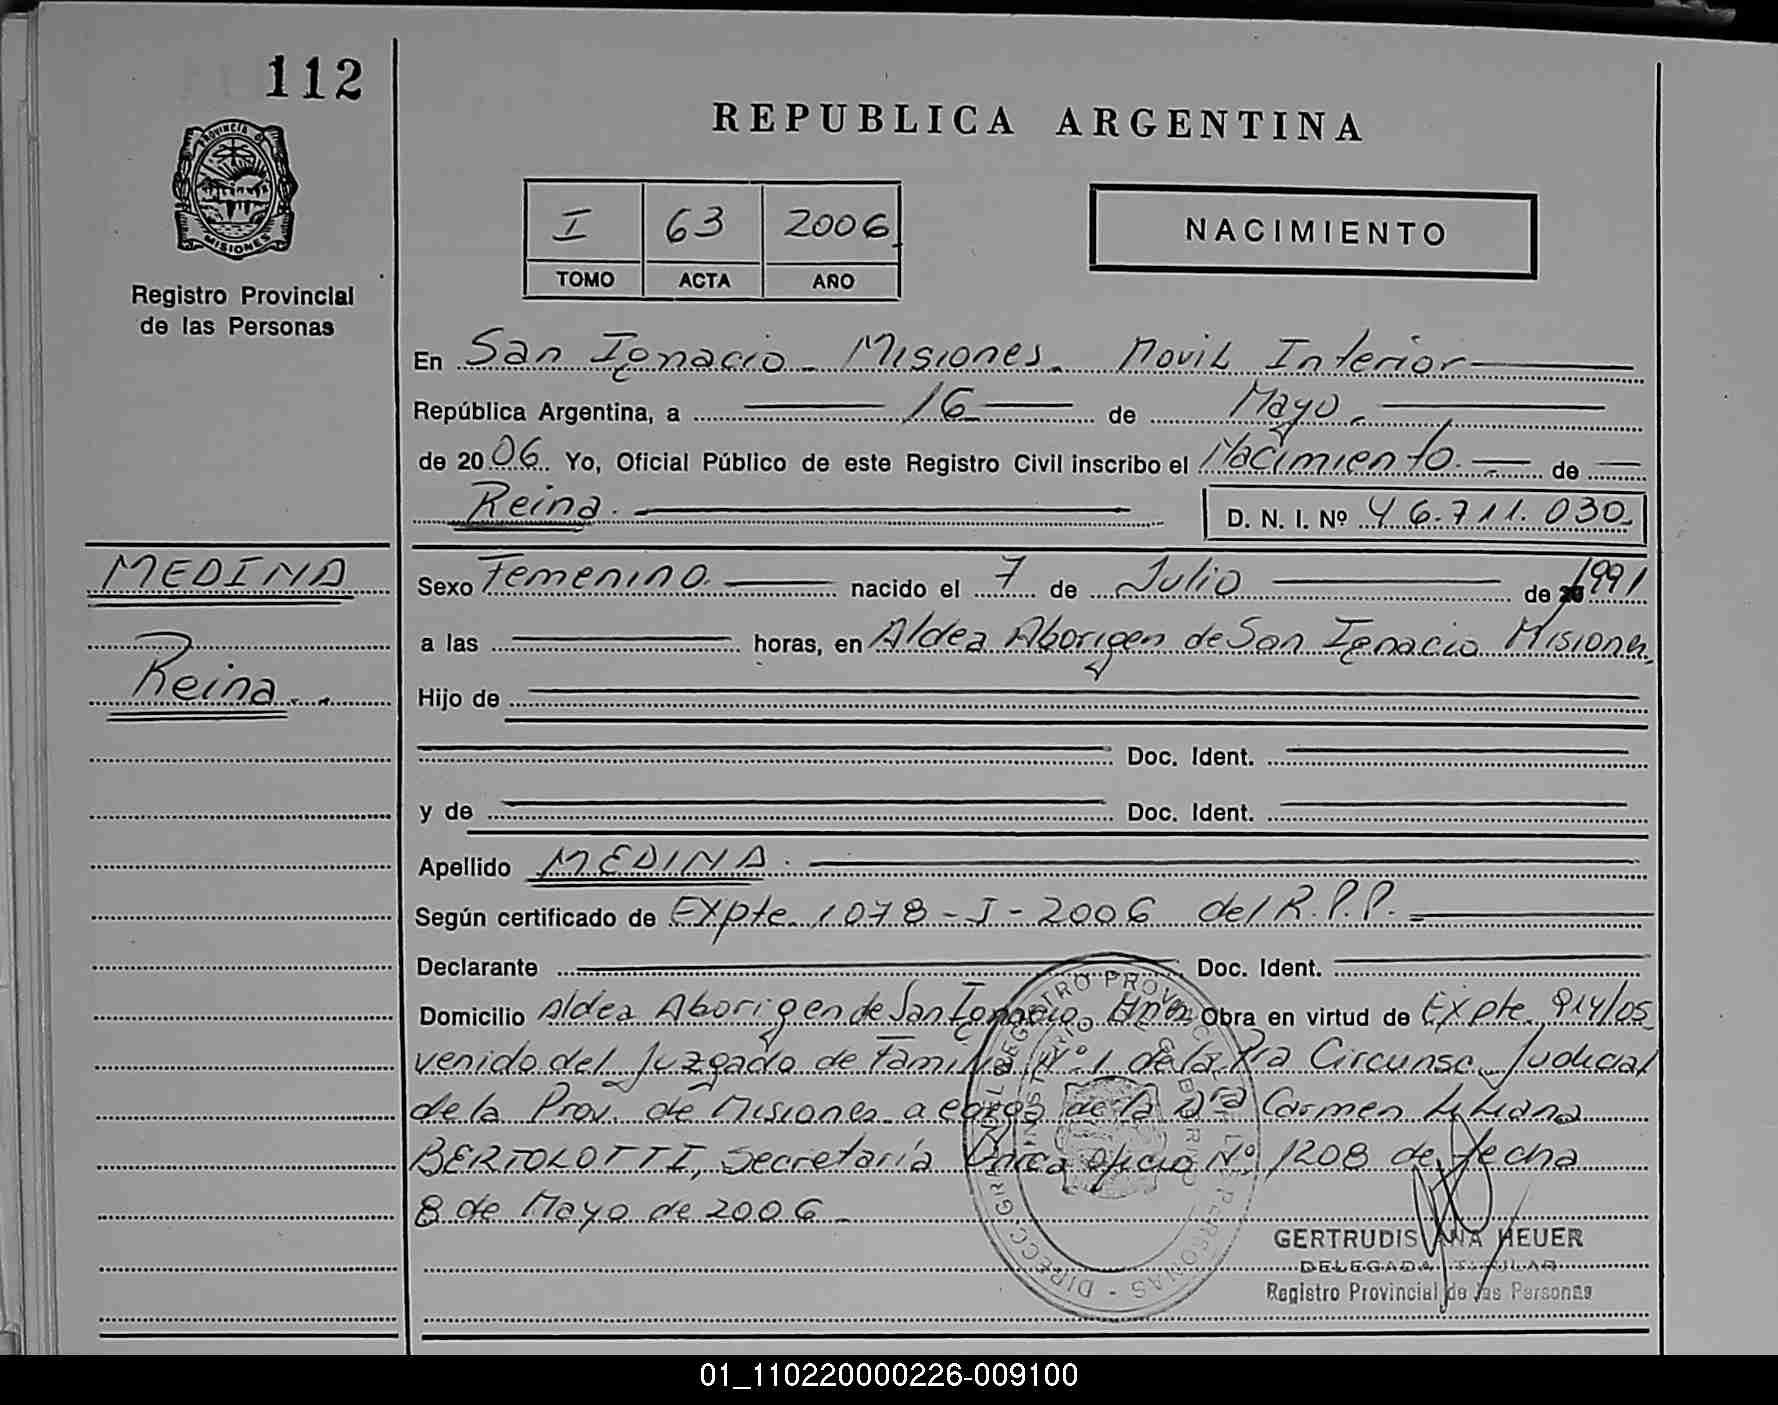 112
REPUBLICA ARGENTINA
PROVINCIA DE
MISIONES
Registro Provincial
de las Personas
I 63 2006
TOMO ACTA AÑO
NACIMIENTO
En San Ignacio - Misiones. Movil Interior
República Argentina, a 16 de Mayo
de 2006. Yo, Oficial Público de este Registro Civil inscribo el Nacimiento de
Reina. D. N. I. Nº 46.711.030
MEDINA
Reina
Sexo Femenino. nacido el 7 de Julio de 1991
a las horas, en Aldea Aborigen de San Ignacio Misiones
Hijo de
Doc. Ident.
y de Doc. Ident.
Apellido MEDINA.
Según certificado de Expte. 1078-I-2006 del R.P.P.
Declarante Doc. Ident.
Domicilio Aldea Aborigen de San Ignacio Obra en virtud de Expte 914/05
venido del Juzgado de Familia Nº 1 de la Pra Circunsc. Judicial
de la Prov. de Misiones a cargo de la Dra Carmen Liliana
BERTOLOTTI, Secretaría Unica oficio Nº 1208 de fecha
8 de Mayo de 2006
GERTRUDIS ANA HEUER
DELEGADA TITULAR
Registro Provincial de las Personas
01_110220000226-009100